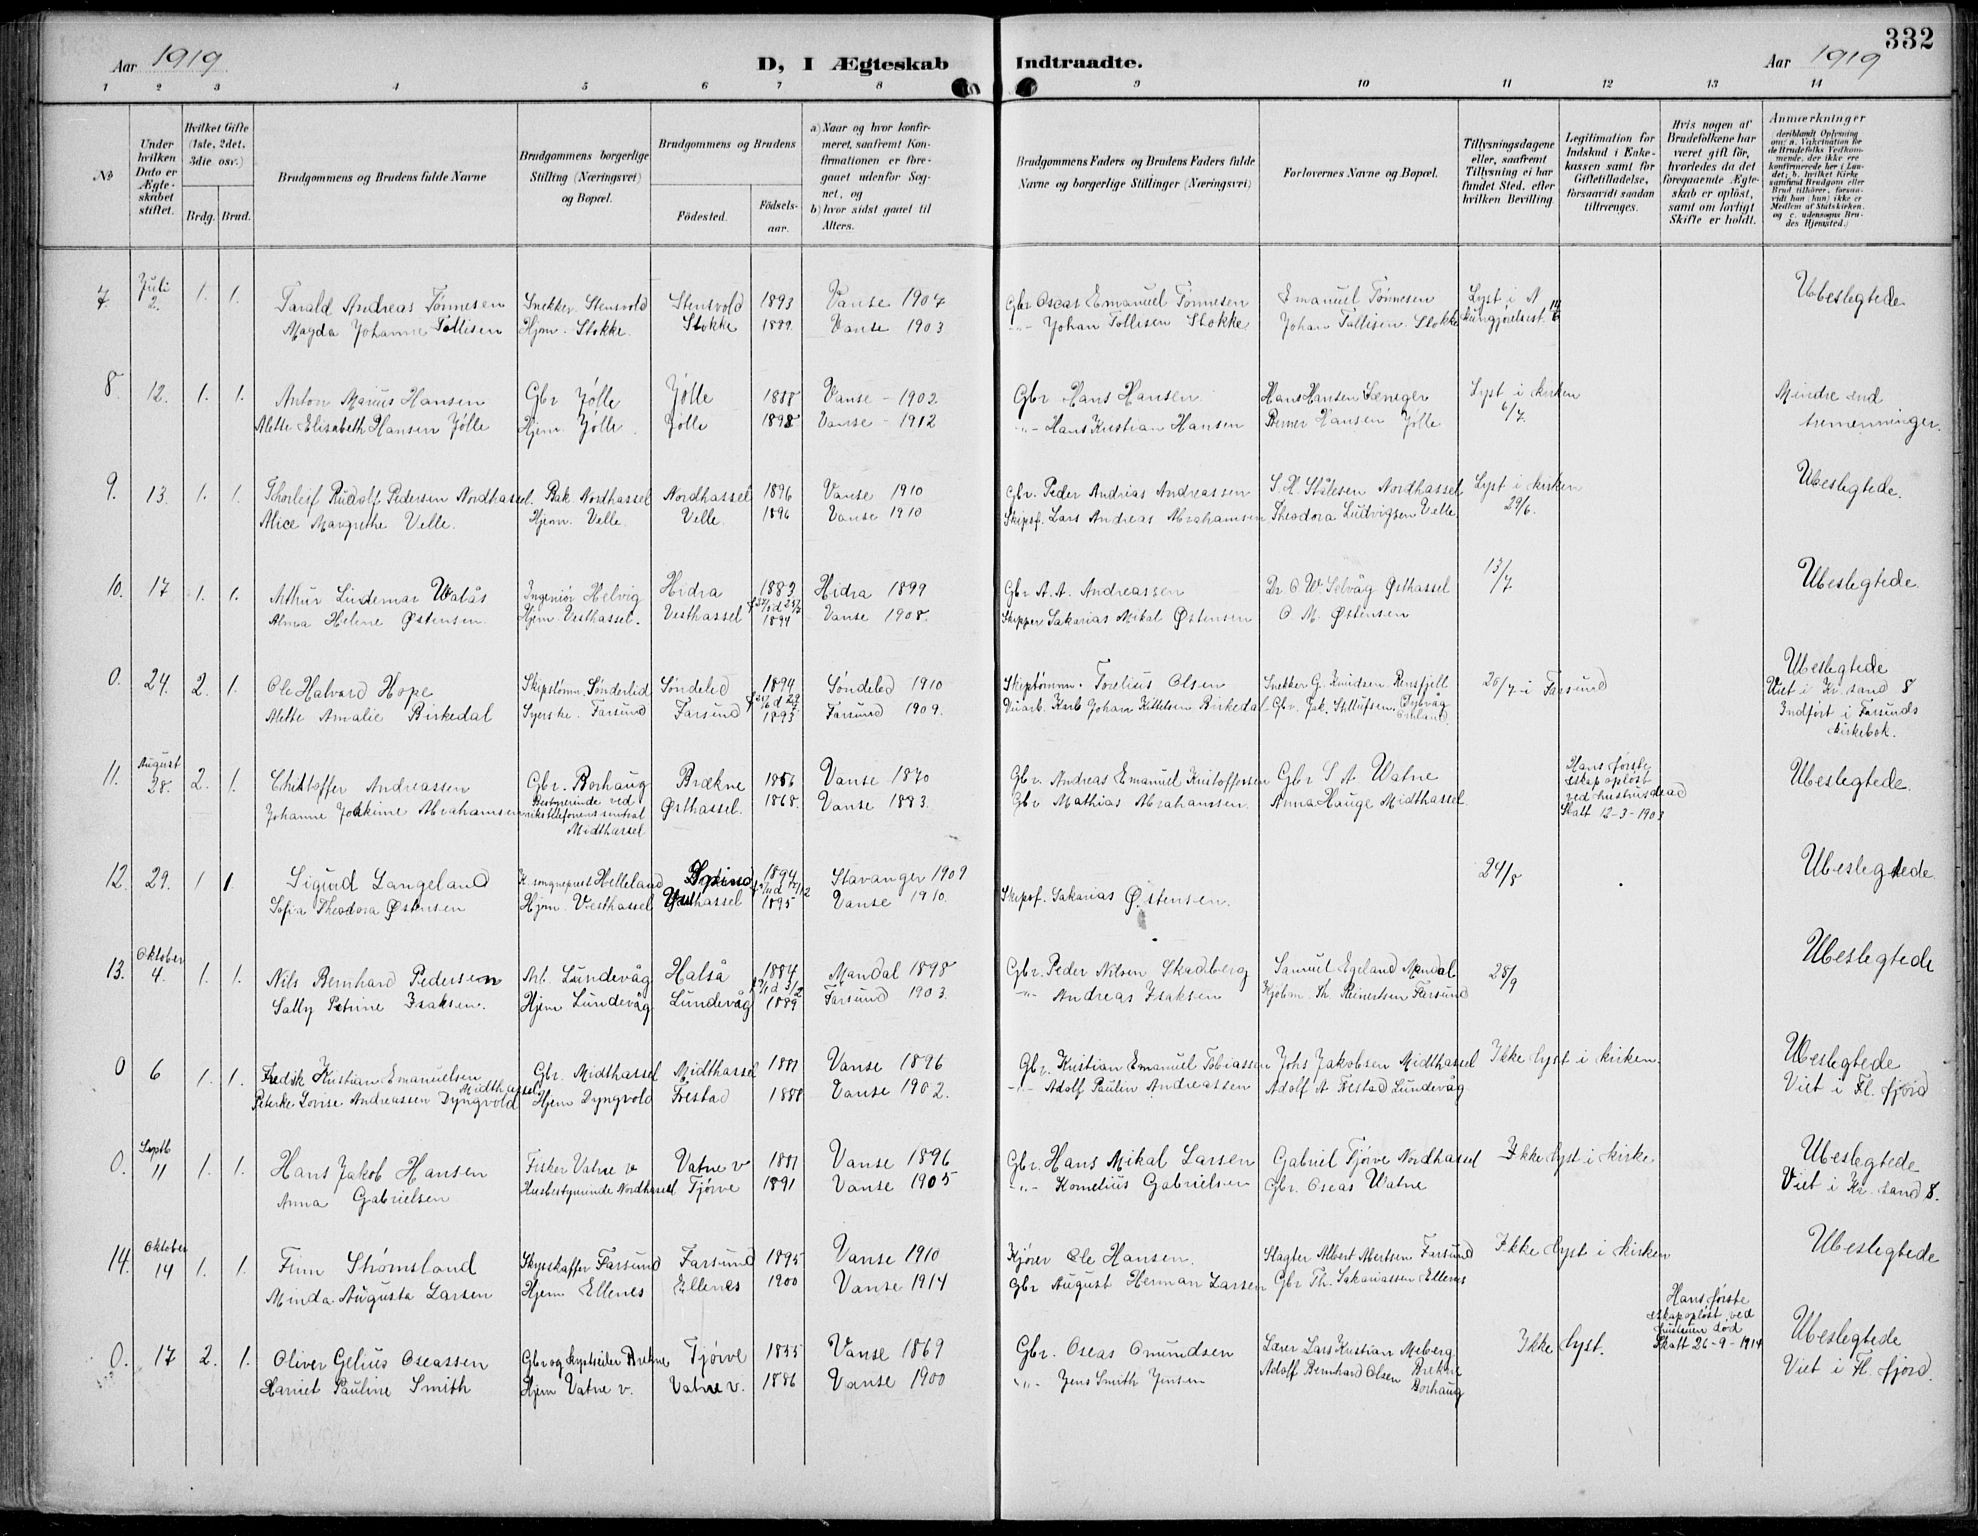 332
Aar 1919
D, I Ægteskab Indtraadte.
Aar 1919
1 2 3 4 5 6 7 8 9 10 11 12 13 14
№
Under hvilken Dato er Ægteskabet stiftet.
Hvilket Gifte (1ste, 2det, 3die osv.)
Brdg. Brud.
Brudgommens og Brudens fulde Navne
Brudgommens borgerlige Stilling (Næringsvei) og Bopæl.
Brudgommens og Brudens
Fødested.
Fødselsaar.
a) Naar og hvor konfirmeret, saafremt Konfirmationen er foregaaet udenfor Sognet, og
b) hvor sidst gaaet til Alters.
Brudgommens Faders og Brudens Faders fulde Navne og borgerlige Stillinger (Næringsvei)
Forlovernes Navne og Bopæl.
Tillysningsdagene eller, saafremt Tillysning ei har fundet Sted, efter hvilken Bevilling.
Legitimation for Indskud i Enkekassen samt for Giftetilladelse, forsaavidt saadan tiltrænges.
Hvis nogen af Brudefolkene har været gift før, hvorledes da det foregaaende Ægteskab er opløst, samt om lovligt Skifte er holdt.
Anmærkninger
7 Juli 2. 1. 1. Tarald Andreas Tønnesen Snekker Stensvold Stensvold 1893 Vanse 1907 Gbr Oscar Emanuel Tønnesen Emanuel Tønnesen Lyst i Ubeslegtede
Magda Johanne Tollisen Hjem. Stokke. Stokke 1889 Vanse 1903 -"- Johan Tollisen Stokke Johan Tollisen Stokke
8 12. 1. 1. Anton Marius Hansen Gbr Jølle Jølle 1888 Vanse - 1902. Gbr Hans Hansen Hans Hansen Lyst i kirken 6/7. Mindre end
Alette Elisabeth Hansen Jølle Hjem. Jølle Jølle 1898 Vanse - 1912 -"- Hans Kristian Hansen Berner Hansen Jølle tremenninger.
9. 13. 1. 1. Thorleif Rudolf Pedersen Nordhassel. Bak Nordhassel Nordhassel 1896 Vanse 1910 Gbr. Peder Andrias Andreassen S. H. Stålesen Nordhassel Lyst i kirken 29/6. Ubeslegtede.
Alice Margrethe Velle. Hjem. Velle. Velle. 1896 Vanse 1910 Skipsf. Lars Andreas Abrahamsen Theodora Ludvigsen Velle
10. 17 1. 1. Arthur Lindemar Valås Ingeniør Helvig Hidra 1883 Hidra 1899 Gbr A. A. Andreassen Dr O W Selvåg Østhassel 13/7 Ubeslegtede
Alma Helene Østensen. Hjem Vesthassel. Vesthassel 1894 Vanse 1908. Skipper Sakarias Mikal Østensen O. M. Østensen
0. 24. 2. 1. Ole Halvard Hope Skipstømm. Sønderlid Søndeled 1894 Søndeled 1910 Skipstømm. Torelius Olsen Snekker G. Knudsen Rensfjell 20/7 i Farsund Ubeslegtede
Alette Amalie Birkedal Syerske. Farsund Farsund 1893 Farsund 1909. Karl Johan Kittelsen Birkedal Gbr. Jak. Viet i Kr. sand S
Indført i Farsunds kirkebok.
11. August 28. 2. 1. Christoffer Andreassen Gbr. Borhaug Brækne 1856 Vanse 1870 Gbr. Andreas Emanuel Kristoffersen Gbr S A. Watne Hans første eskap opløst ved hustrus død Skatt 12-3-1903 Ubeslegtede.
Johanne Jokkime Abrahamsen Bestyrerinde ved rikstelefonens sentral Midthassel Østhassel. 1868. Vanse 1883. Gbr Mathias Abrahamsen. Anna Hauge Midthassel
12. 29. 1 1. Sigurd Langeland K. sogneprest Helleland 1894 Stavanger 1909 24/8 Ubeslegtede
Sofia Theodora Østensen Hjem. Vesthassel Vesthassel 1895 Vanse 1910. Skipsf. Sakarias Østensen.
13. Oktober 4. 1. 1. Nils Bernhard Pedersen Arb. Lundevåg Halså 1884 Mandal 1898 Gbr. Peder Nilsen Skadberg Samuel Egeland Mandal 28/9 Ubeslegtede
Sally Petrine Isaksen. Hjem Lundevåg Lundevåg 1889 Farsund 1903. -"- Andreas Isaksen Kjøbm. Th. Reinertsen Farsund
0 6 1. 1. Fredrik Kristian Emanuelsen Midthassel Gbr. Midthassel Midthassel 1881 Vanse 1896 Gbr. Kristian Emanuel Tobiassen Johs Jakobsen Midthassel Ikke lyst i kirken. Ubeslegtede
Peterke Lovise Andreassen Dyngvold Hjem Dyngvold Frestad 1888 Vanse 1902. -"- Adolf Paulin Andreassen Adolf A Frestad Lundevåg Viet i Fl. fjord
0. Septb 11 1. 1. Hans Jakob Hansen Fisker Vatne v Vatne v 1881 Vanse 1896 Gbr. Hans Mikal Larsen Gabriel Tjørve Nordhassel Ikke lyst i kirke Ubeslegtede
Anna Gabrielsen Husbestyrerinde Nordhassel Tjørve 1891 Vanse 1905 -"- Kornelius Gabrielsen Gbr. Oseas Watne Viet i Kr. sand S.
14. Oktober 14 1. 1. Finn Strømsland Skysskaffer Farsund Farsund 1895 Vanse 1910 Kjører Ole Hansen. Slagter Albert Abertsen Farsund Ikke lyst i kirken Ubeslegtede
Minda Augusta Larsen Hjem Ellenes Ellenes 1900 Vanse 1914 Gbr August Herman Larsen Gbr Th. Sakariassen Ellenes
0. 17 2. 1. Oliver Gelius Oseassen Gbr og Tjørve 1855 Vanse 1869 Gbr. Oseas Omundsen Lærer Lars Kristian Meberg Brekne Ikke lyst. Hans første eskap opløst ved hustruen død Skatt 26-9-1914 Ubeslegtede
Harriet Pauline Smith Hjem Vatne v. Vatne v. 1886 Vanse 1900 -"- Jens Smith Jensen Adolf Bernhard Olsen Borhaug Viet i Fl. fjord.